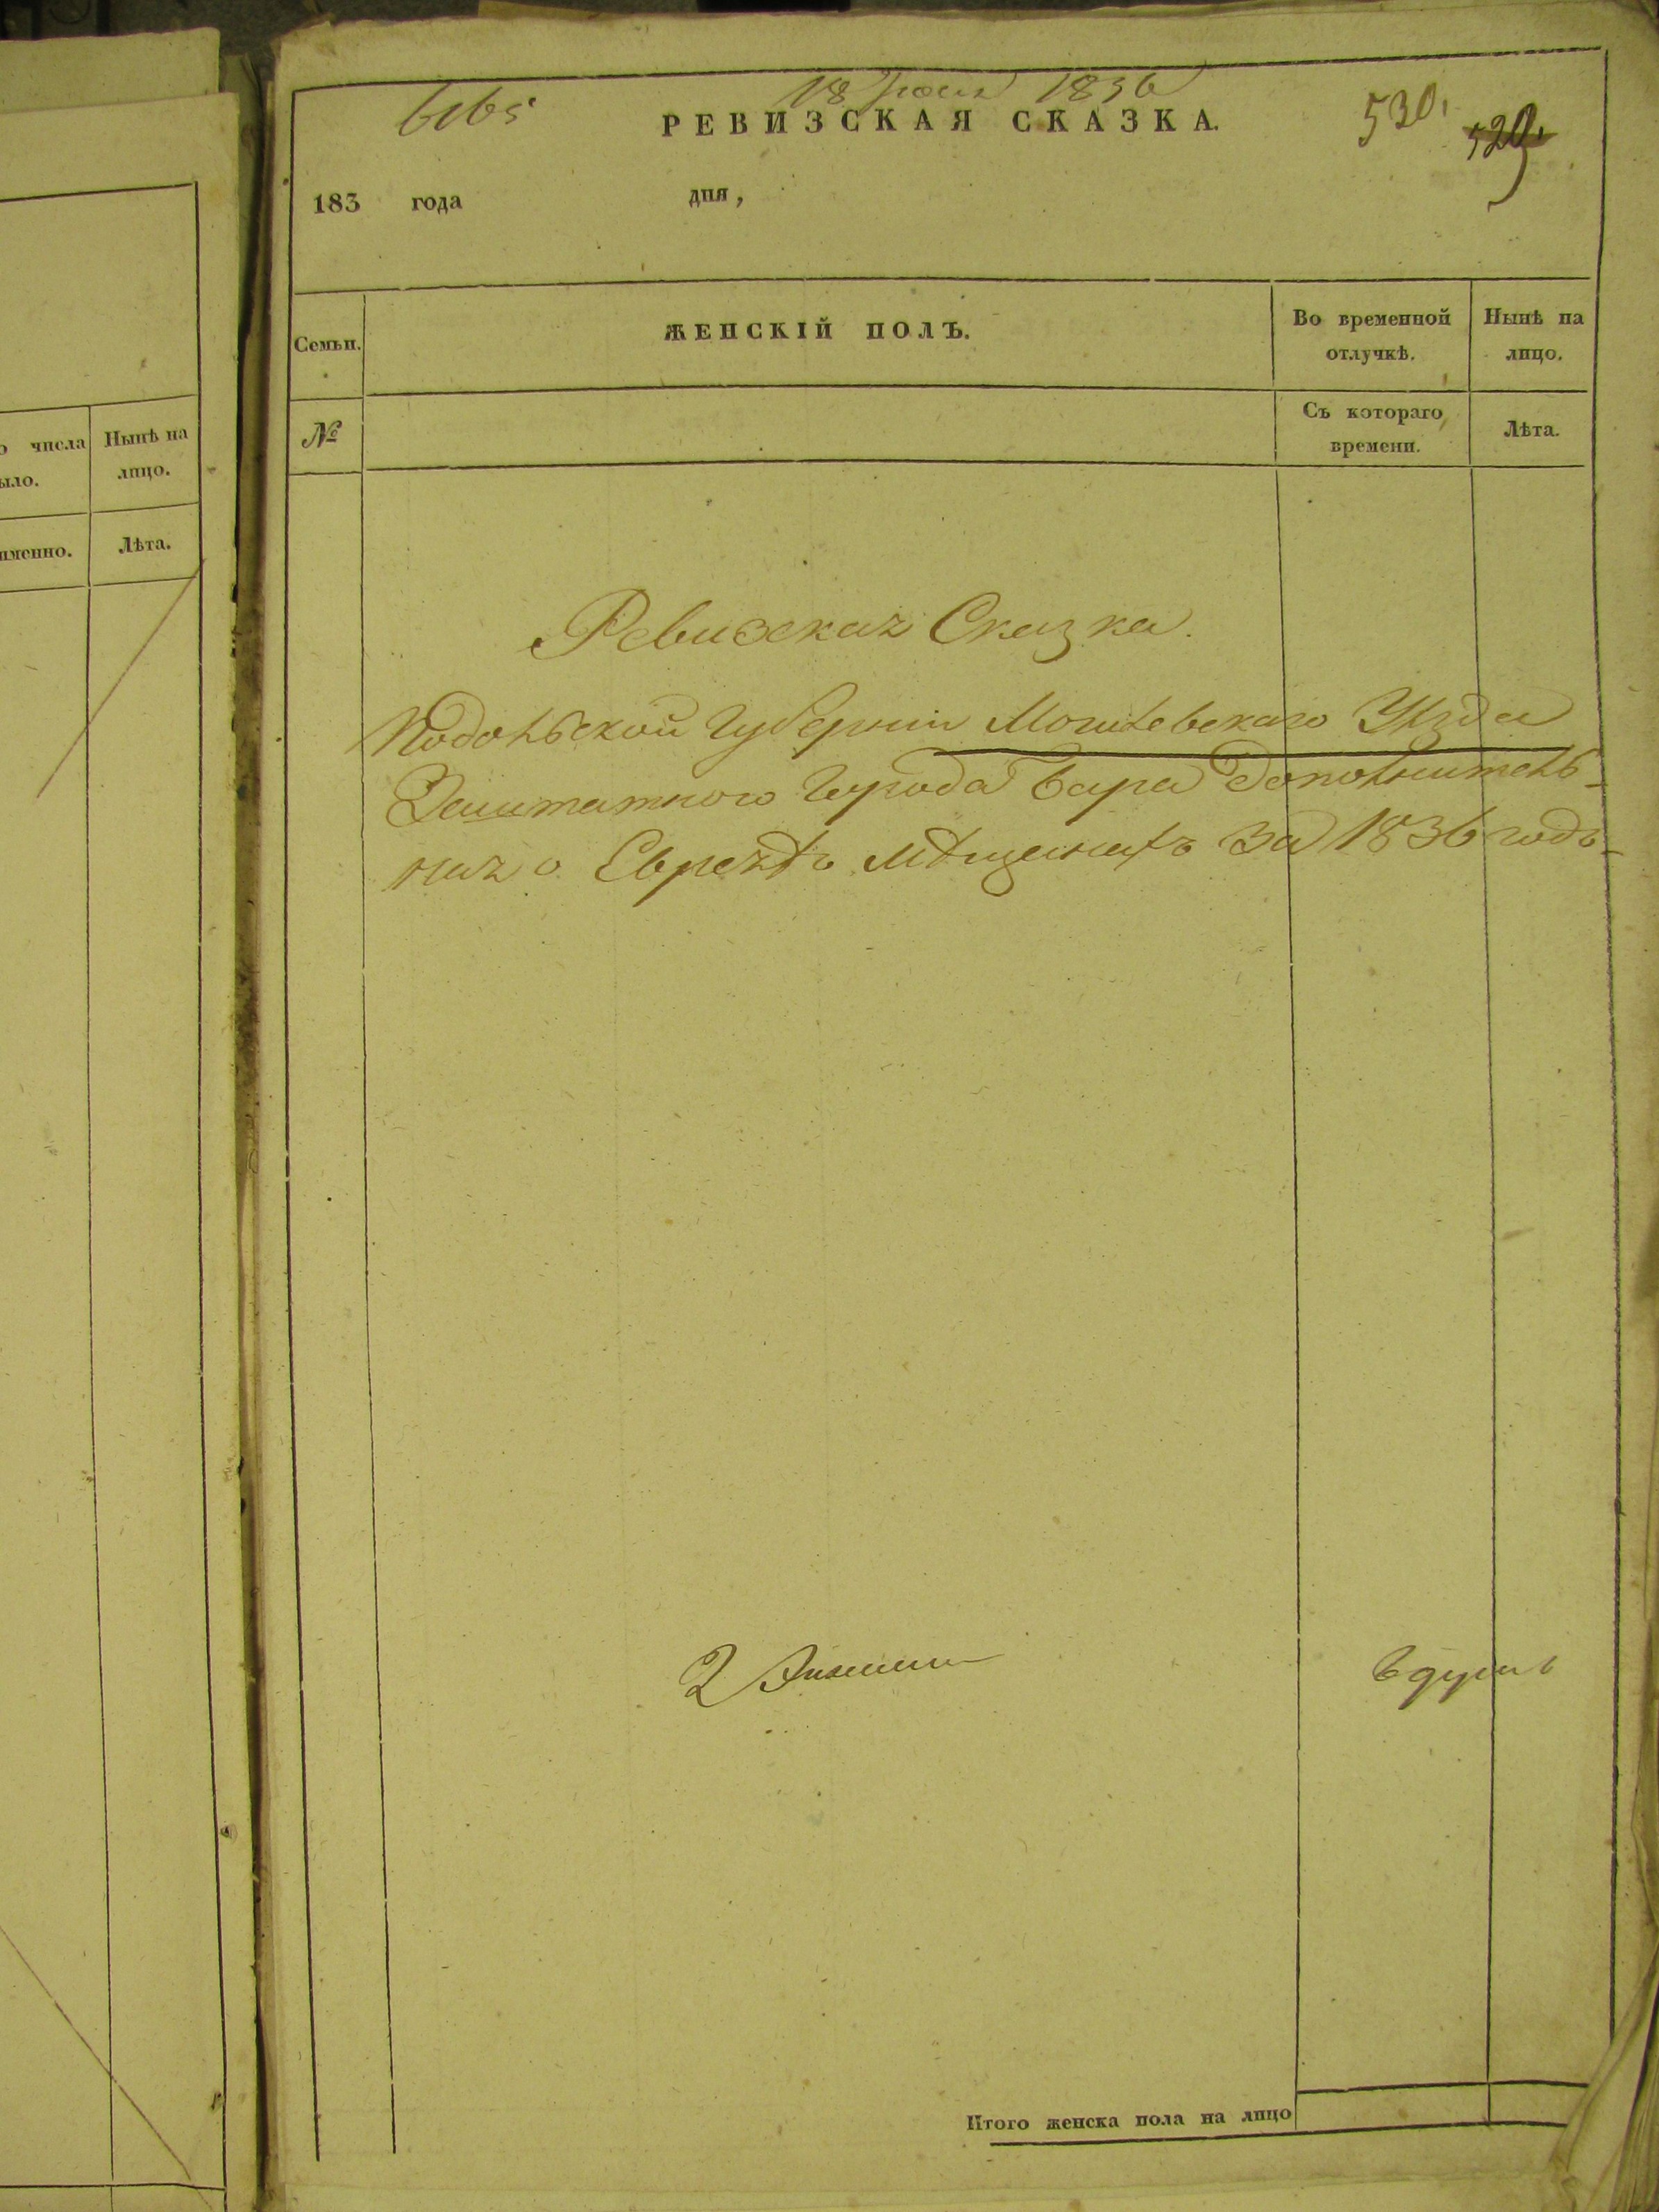 о числа
ыло.
Нынѣ на
лицо.
именно.
Лѣта.
18 Іюня 1836
6165
РЕВИЗСКАЯ СКАЗКА.
530.
529.
183 года дня,
Семьи.
ЖЕНСКІЙ ПОЛЪ.
Во временной
отлучкѣ.
Нынѣ на
лицо.
№
Съ котораго
времени.
Лѣта.
Ревизская Сказка.
Подольской Губерніи Могилевскаго Уѣзда
Заштатного Города Бара дополнитель-
ная о Евреяхъ мѣщанахъ за 1836 годъ
2
6 душъ
Итого женска пола на лицо